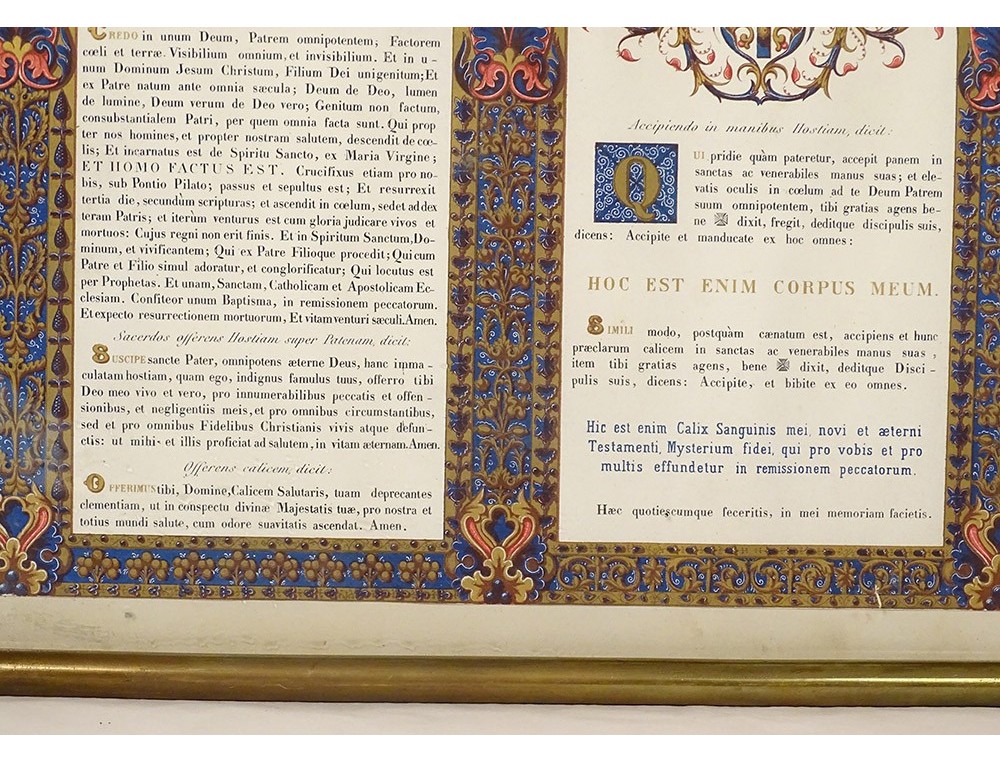 CREDO in unum Deum, Patrem omnipotentem; Factorem
cœli et terræ. Visibilium omnium, et invisibilium. Et in u-
num Dominum Jesum Christum, Filium Dei unigenitum; Et
ex Patre natum ante omnia sæcula; Deum de Deo, lumen
de lumine, Deum verum de Deo vero; Genitum non factum,
consubstantialem Patri, per quem omnia facta sunt. Qui prop
ter nos homines, et propter nostram salutem, descendit de cœ-
lis; Et incarnatus est de Spiritu Sancto, ex Maria Virgine;
ET HOMO FACTUS EST. Crucifixus etiam pro no-
bis, sub Pontio Pilato; passus et sepultus est; Et resurrexit
tertia die, secundùm scripturas; et ascendit in cœlum, sedet ad dex
teram Patris; et iterùm venturus est cum gloria judicare vivos et
mortuos: Cujus regni non erit finis. Et in Spiritum Sanctum, Do-
minum, et vivificantem; Qui ex Patre Filioque procedit; Qui cum
Patre et Filio simul adoratur, et conglorificatur; Qui locutus est
per Prophetas. Et unam, Sanctam, Catholicam et Apostolicam Ec-
clesiam. Confiteor unum Baptisma, in remissionem peccatorum.
Et expecto resurrectionem mortuorum, Et vitam venturi sæculi. Amen.
Sacerdos offerens Hostiam super Patenam, dicit:
SUSCIPE sancte Pater, omnipotens æterne Deus, hanc imma-
culatam hostiam, quam ego, indignus famulus tuus, offerro tibi
Deo meo vivo et vero, pro innumerabilibus peccatis et offen-
sionibus, et negligentiis meis, et pro omnibus circumstantibus,
sed et pro omnibus Fidelibus Christianis vivis atque defun-
ctis: ut mihi et illis proficiat ad salutem, in vitam æternam. Amen.
Offerens calicem, dicit:
OFFERIMUS tibi, Domine, Calicem Salutaris, tuam deprecantes
clementiam, ut in conspectu divinæ Majestatis tuæ, pro nostra et
totius mundi salute, cum odore suavitatis ascendat. Amen.
Accipiendo in manibus Hostiam, dicit:
QUI pridie quàm pateretur, accepit panem in
sanctas ac venerabiles manus suas; et ele-
vatis oculis in cœlum ad te Deum Patrem
suum omnipotentem, tibi gratias agens be-
ne ✠ dixit, fregit, deditque discipulis suis,
dicens: Accipite et manducate ex hoc omnes:
HOC EST ENIM CORPUS MEUM.
SIMILI modo, postquàm cænatum est, accipiens et hunc
præclarum calicem in sanctas ac venerabiles manus suas,
item tibi gratias agens, bene ✠ dixit, deditque Disci-
pulis suis, dicens: Accipite, et bibite ex eo omnes.
Hic est enim Calix Sanguinis mei, novi et æterni
Testamenti, Mysterium fidei, qui pro vobis et pro
multis effundetur in remissionem peccatorum.
Hæc quotiescumque feceritis, in mei memoriam facietis.